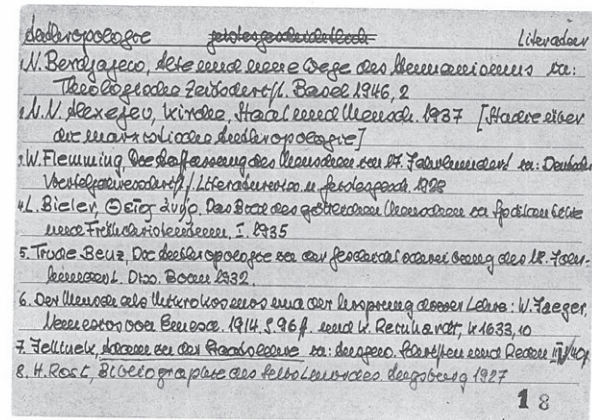 Anthropologie geistesgeschichtlich Literatur
1. N. Berdjajew, Alte und neue Wege des Humanismus in:
Theologische Zeitschrift. Basel 1946, 2
2. N. N. Alexejev, Kirche, Staat und Mensch. 1937 [Studie über
die marxistische Anthropologie]
3. W. Flemming, Die Auffassung des Menschen im 17. Jahrhundert in: Deutsche
Vierteljahresschrift f. Literaturwiss. u. Geistesgesch. 1928
4. L. Bieler, Θεῖος ἀνήρ. Das Bild des göttlichen Menschen in Spätantike
und Frühchristentum, I. 1935
5. Trude Benz, Die Anthropologie in der Geschichtsschreibung des 18. Jahr-
hunderts. Diss. Bonn 1932.
6. Der Mensch als Mikrokosmos und der Ursprung dieser Lehre: W. Jaeger,
Nemesios von Emesa. 1914. S. 96 f. und K. Reinhardt, 1633, 10
7. Jellinek, Adam in der Staatslehre in: Ausgew. Schriften und Reden II
8. H. Rost, Bibliographie des Selbstmordes. Augsburg 1927
18